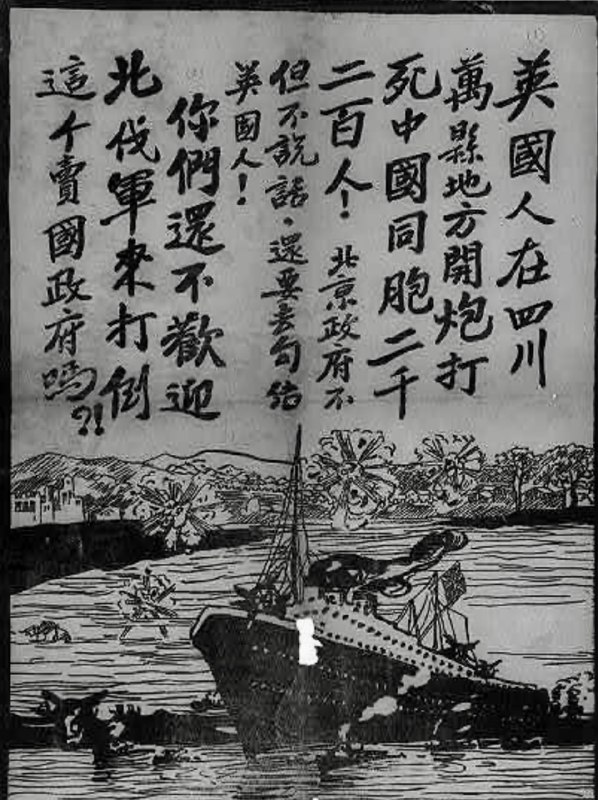 英國人在四川
萬縣地方開炮打
死中國同胞二千
二百人！北京政府不
但不說話，還要去勾結
英國人！
你們還不歡迎
北伐軍來打倒
這个賣國政府嗎？！